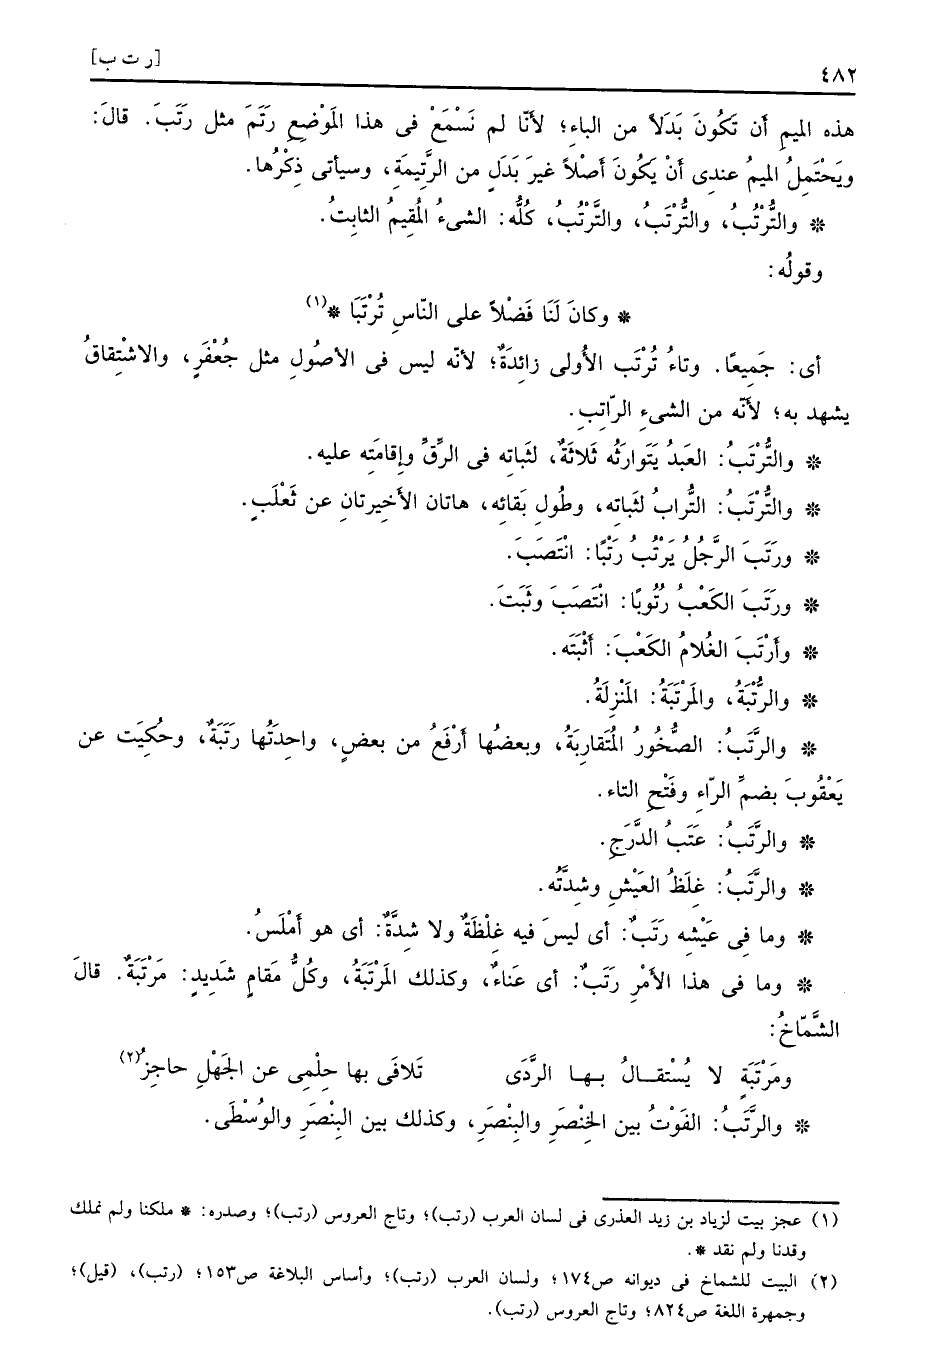 [ر ت ب]
٤٨٢
هذه الميم أن تَكُونَ بَدَلاً من الباءِ؛ لأنَّا لم نَسْمَعْ فى هذا المَوْضِعِ رَتَمَ مثل رَتَبَ. قالَ:
ويَحْتَمِلُ الميمُ عندِى أنْ يَكُونَ أصْلاً غيرَ بَدَلٍ من الرَّتِيمَةِ، وسيأتى ذِكْرُها.
* والتُّرْتُبُ، والتُّرْتَبُ، والتَّرْتُبُ، كُلُّه: الشىءُ المُقِيمُ الثابتُ.
وقولُه:
* وكانَ لَنَا فَضْلاً على النّاسِ تُرْتَبَا *(١)
أى: جَمِيعًا. وتاءُ تُرْتَب الأُولى زائِدَةٌ؛ لأنّه ليس فى الأصُولِ مثل جُعْفَرٍ، والاشْتِقاقُ
يشهد به؛ لأنّه من الشىءِ الرّاتِبِ.
* والتُّرْتَبُ: العَبدُ يَتَوارثُه ثَلاثَةٌ، لثَباتِه فى الرِّقِّ وإقامَتِه عليه.
* والتُّرْتَبُ: التُّرابُ لثَباتِه، وطُولِ بَقائِه، هاتان الأخِيرتانِ عن ثَعْلَبٍ.
* ورَتَبَ الرَّجُلُ يَرْتُبُ رَتْبًا: انْتَصَبَ.
* ورَتَبَ الكَعْبُ رُتُوبًا: انْتَصَبَ وثَبَتَ.
* وأَرْتَبَ الغُلامُ الكَعْبَ: أَثْبَتَه.
* والرُّتْبَةُ، والمَرْتَبَةُ: المَنْزِلَةُ.
* والرَّتَبُ: الصُّخُورُ المُتَقاربَةُ، وبعضُها أرْفَعُ من بعضٍ، واحِدَتُها رَتَبَةٌ، وحُكِيَت عن
يَعْقُوبَ بضمِّ الرّاءِ وفَتْحِ التاء.
* والرَّتَبُ: عَتَبُ الدَّرَجِ.
* والرَّتَبُ: غِلَظُ العَيْشِ وشِدَّتُه.
* وما فى عَيْشِه رَتَبٌ: أى ليسَ فيه غِلْظَةٌ ولا شِدَّةٌ: أى هو أَمْلَسُ.
* وما فى هذا الأمْرِ رَتَبٌ: أى عَناءٌ، وكذلك المَرْتَبَةُ، وكُلُّ مَقامٍ شَدِيدٍ: مَرْتَبَةٌ. قالَ
الشَّمّاخُ:
ومَرْتَبَةٍ لا يُسْتقـالُ بـهـا الرَّدَى تَلافَى بها حِلْمِى عن الجَهْلِ حاجِزُ(٢)
* والرَّتَبُ: الفَوْتُ بين الخِنْصَرِ والبِنْصَرِ، وكذلك بين البِنْصَرِ والوُسْطَى.
(١) عجز بيت لزياد بن زيد العذرى فى لسان العرب (رتب)؛ وتاج العروس (رتب)؛ وصدره: * ملكنا ولم نملك
وقدنا ولم نقد *.
(٢) البيت للشماخ فى ديوانه ص١٧٤؛ ولسان العرب (رتب)؛ وأساس البلاغة ص١٥٣؛ (رتب)، (قيل)؛
وجمهرة اللغة ص٨٢٤؛ وتاج العروس (رتب).